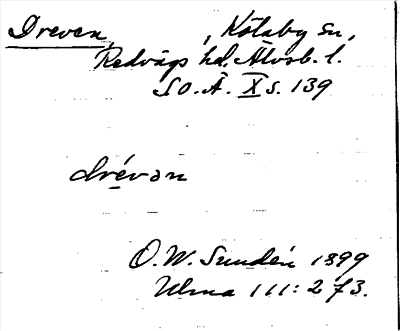 Dreven, , Kölaby sn,
Redvägs hd. Älvsb. l.
S O. Ä. X s. 139
drévan
O. W. Sundén 1899
Ulma 111: 273.